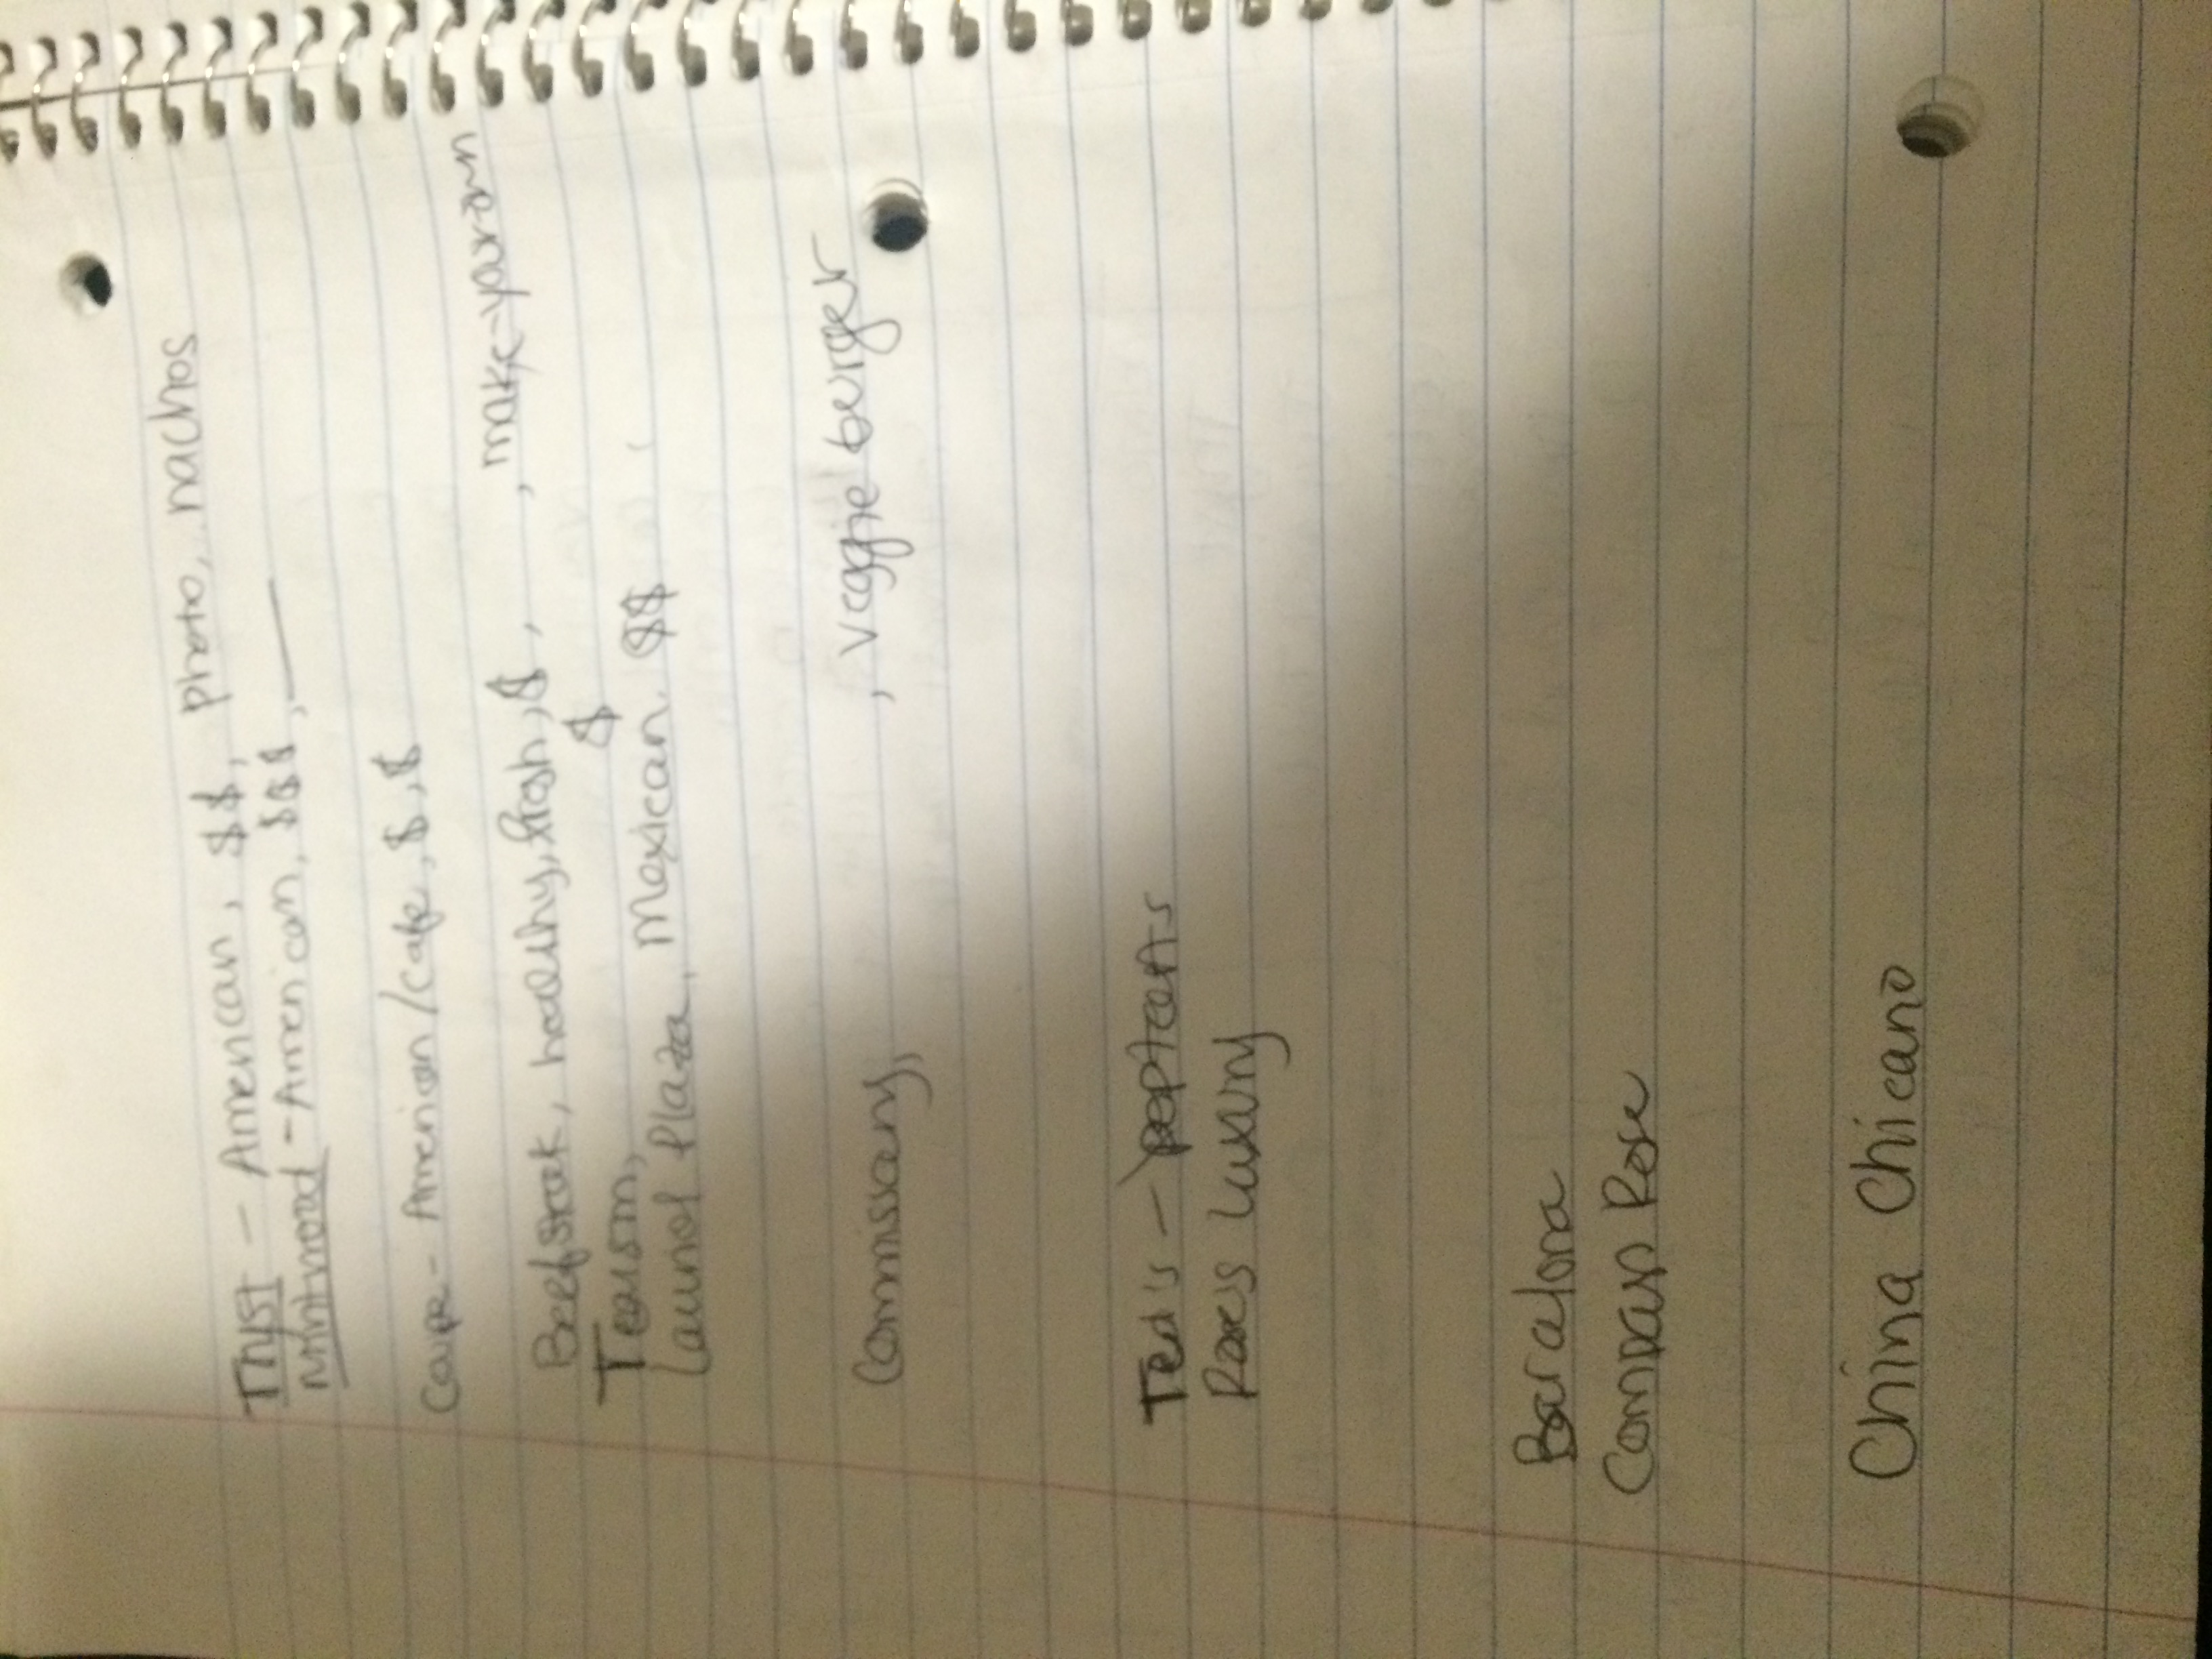 Tryst - American, $$, photo, nachos
Mintwood - American, $$$, —
Coupe - American/cafe, $, $
Beefsteak, healthy, fresh, $, , make-your-own
Teaism, $
Lauriol Plaza, Mexican. $$
Commissary, , veggie burger
Ted's - poptarts
Rose's Luxury
Barcelona
Compass Rose
China Chicano